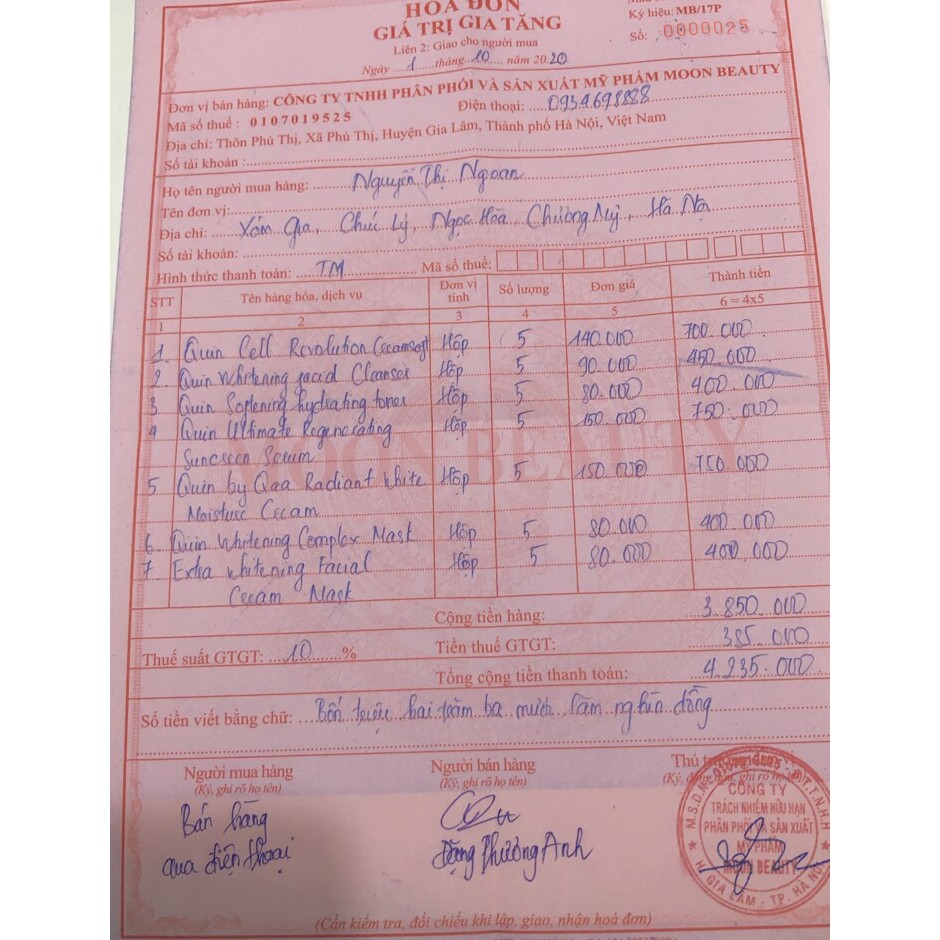 HÓA ĐƠN
GIÁ TRỊ GIA TĂNG
Liên 2: Giao cho người mua
Ngày 1 tháng 10 năm 2020
Ký hiệu: MB/17P
Số: 0000025
Đơn vị bán hàng: CÔNG TY TNHH PHÂN PHỐI VÀ SẢN XUẤT MỸ PHẨM MOON BEAUTY
Mã số thuế : 0107019525 Điện thoại: 0934.698888
Địa chỉ: Thôn Phú Thị, Xã Phú Thị, Huyện Gia Lâm, Thành phố Hà Nội, Việt Nam
Số tài khoản :
Họ tên người mua hàng: Nguyễn Thị Ngoan
Tên đơn vị:
Địa chỉ: Xóm Gia, Chúc Lý, Ngọc Hòa Chương Mỹ, Hà Nội
Số tài khoản:
Hình thức thanh toán: TM Mã số thuế:
STT Tên hàng hóa, dịch vụ Đơn vị tính Số lượng Đơn giá Thành tiền
1 2 3 4 5 6 = 4x5
1. Quin Cell Revolution Hộp 5 140.000 700.000
2 Quin Whitening facial Cleanser Hộp 5 90.000 450.000
3 Quin Softening hydrating toner Hộp 5 80.000 400.000
4 Quin Ultimate Regenerating Hộp 5 150.000 750.000
Suncseen Serum
5 Quin by Qaa Radiant White Hộp 5 150.000 750.000
Moisture Cream
6. Quin Whitening Complex Mask Hộp 5 80.000 400.000
7. Extra Whitening Facial Hộp 5 80.000 400.000
Cream Mask
Cộng tiền hàng: 3.850.000
Thuế suất GTGT: 10 % Tiền thuế GTGT: 385.000
Tổng cộng tiền thanh toán: 4.235.000
Số tiền viết bằng chữ: Bốn triệu hai trăm ba mươi lăm nghìn đồng
Người mua hàng Người bán hàng
(Ký, ghi rõ họ tên) (Ký, ghi rõ họ tên)
Bán hàng
qua điện thoại
Đặng Phương Anh
CÔNG TY
TRÁCH NHIỆM HỮU HẠN
PHÂN PHỐI VÀ SẢN XUẤT
MỸ PHẨM
MOON BEAUTY
H. GIA LÂM - TP. HÀ NỘI
(Cần kiểm tra, đối chiếu khi lập, giao, nhận hoá đơn)
MOON BEAUTY